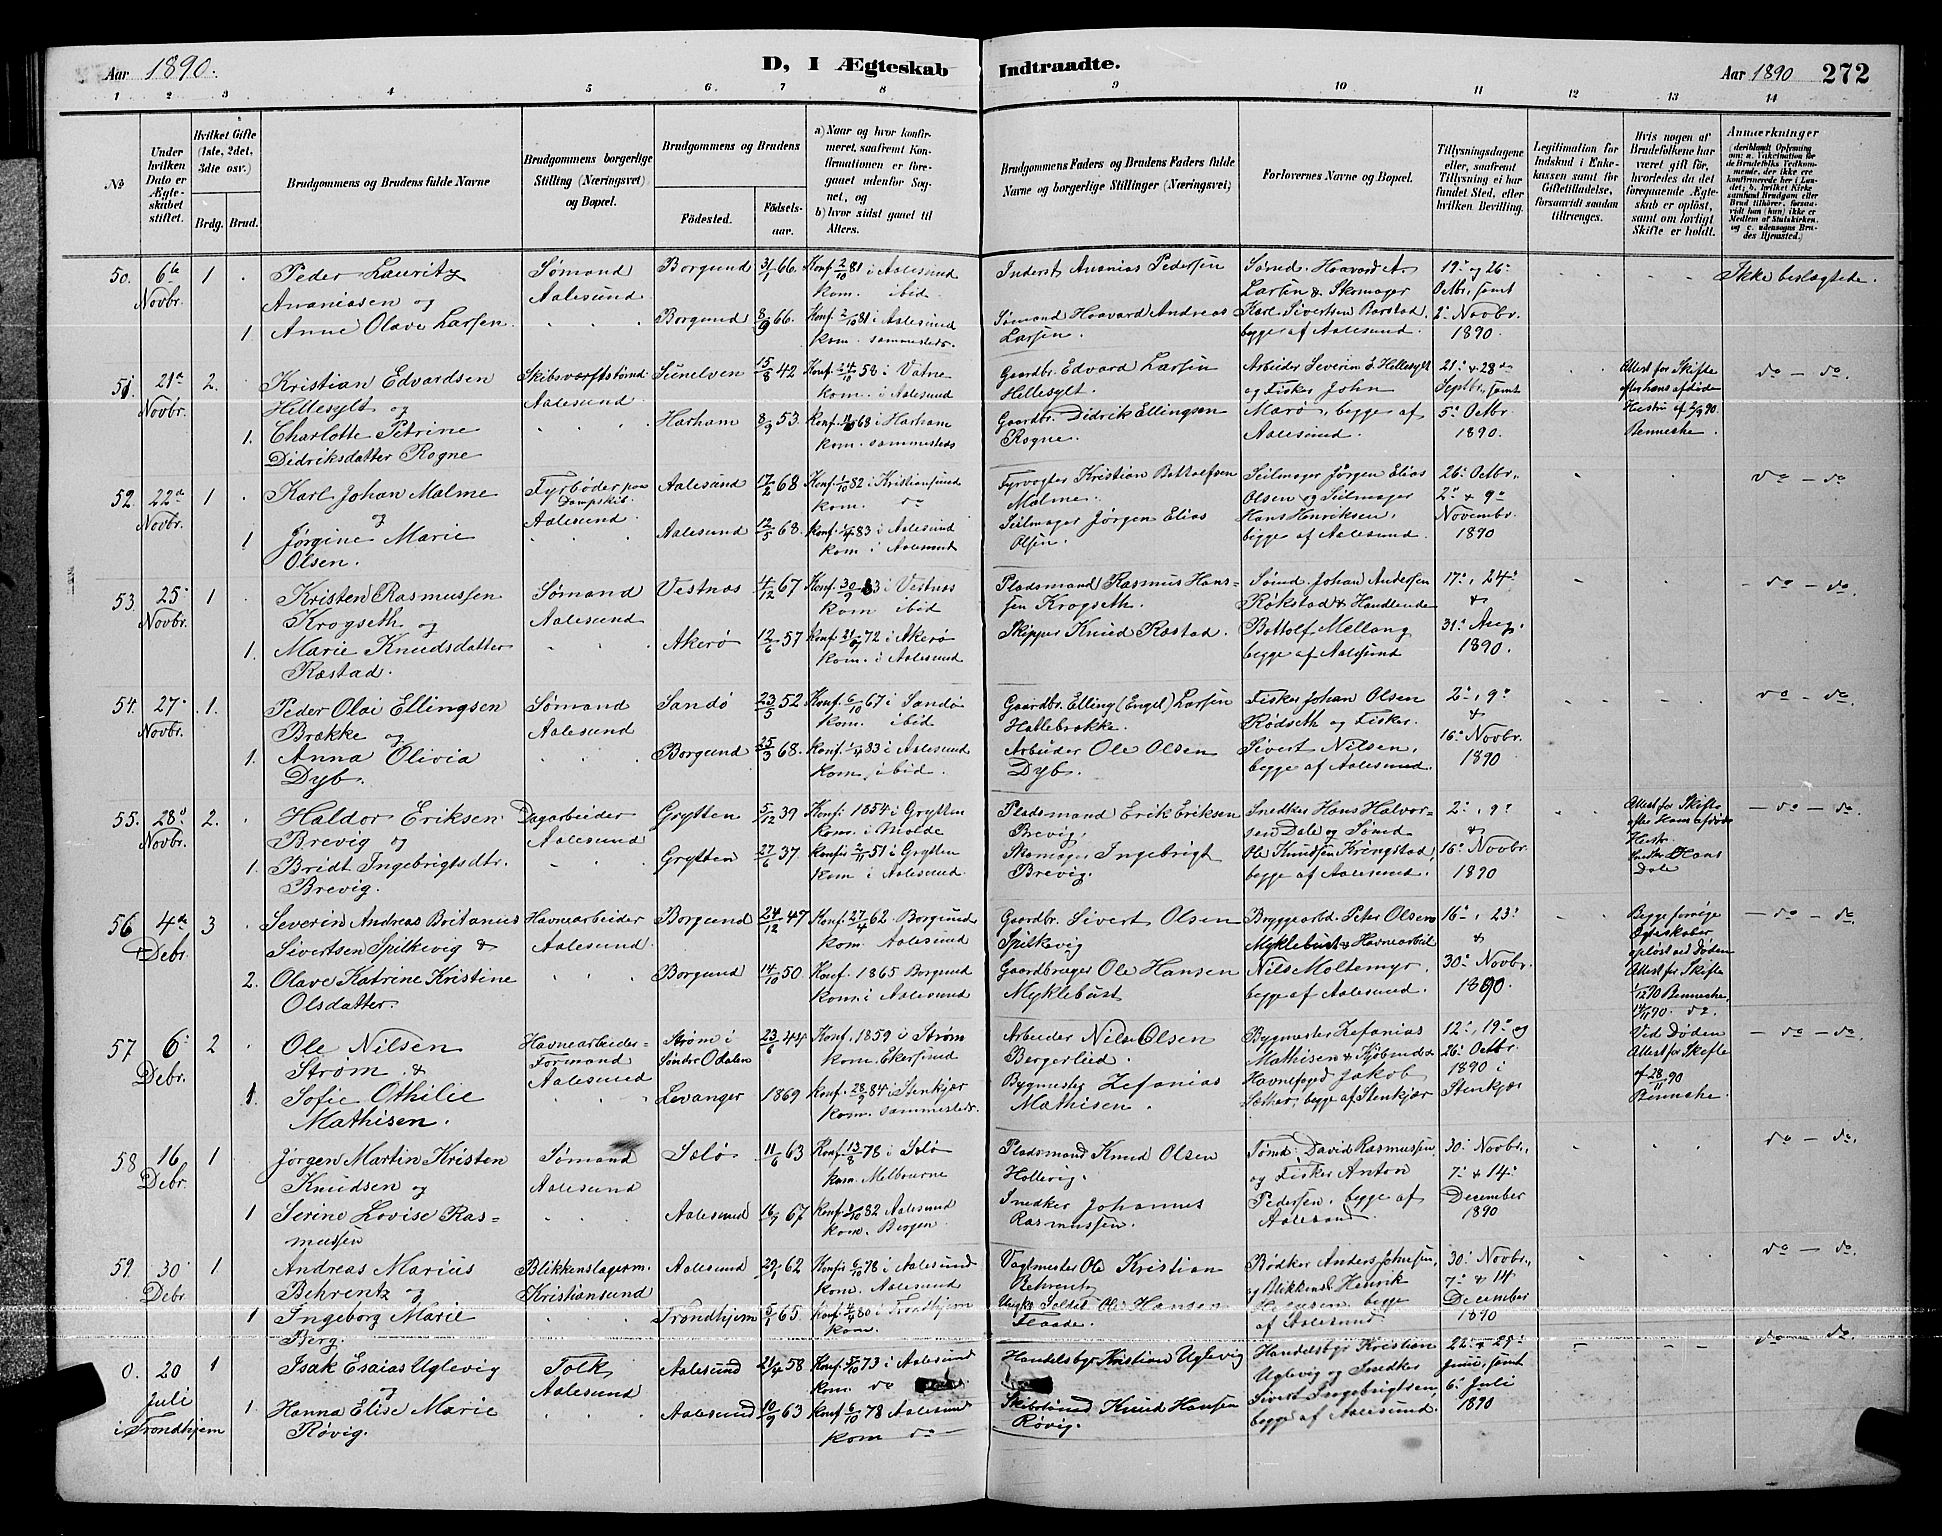 Aar 1890.
D, I Ægteskab Indtraadte.
Aar 1890 272
1 2 3 4 5 6. 7 8 9 10 11 12 13 14
No
Under hvilken Dato er Ægteskabet stiftet.
Hvilket Gifte (1ste, 2det, 3die osv.)
Brdg. Brud.
Brudgommens og Brudens fulde Navne
Brudgommens borgerlige Stilling (Næringsvei) og Bopæl.
Brudgommens og Brudens
Fødested. Fødselsaar.
a) Naar og hvor konfirmeret, saafremt Konfirmationen er foregaaet udenfor Sognet, og
b) hvor sidst gaaet til Alters.
Brudgommens Faders og Brudens Faders fulde Navne og borgerlige Stillinger (Næringsvei)
Forlovernes Navne og Bopæl.
Tillysningsdagene eller, saafremt Tillysning ei har fundet Sted, efter hvilken Bevilling.
Legitimation for Indskud i Enkekassen samt for Giftetilladelse, forsaavidt saadan tiltrænges.
Hvis nogen af Brudefolkene har været gift før, hvorledes da det foregaaende Ægteskab er opløst, samt om lovligt Skifte er holdt.
Anmærkninger
50. 6te Novbr. 1 Peder Lauritz Ananiasen og
Sømand Aalesund
Borgund 31/1 66. Konf. 2/10 81 i Aalesund kom. ibid.
Inderst Ananias Pedersen
Sømd. Haavard A. Larsen & Skomager Karl Sivertsen Barstad, begge af Aalesund
19de og 26de Octbr. samt 2den Novbr. 1890.
Ikke beslægtede.
1. Anne Olave Larsen.
Borgund 8/9 66. Konf. 2/10 81 i Aalesund kom. sammesteds.
Sømand Haavard Andreas Larsen
51. 21de Novbr. 2. Kristian Edvardsen Hellesylt og
Skibsværftstømd. Aalesund
Sunelven 15/8 42 Konf. 24/10 58 i Vatne kom. i Aalesund
Gaardbr. Edvard Larsen Hellesylt
Arbeider Severin E. Hellesylt og Fisker John Marø, begge af Aalesund.
21de & 28de Septbr. samt 5te Octbr. 1890.
Attest for Skifte efter hans afdøde Hustru af 2/9 90. Benneche
do - do
1. Charlotte Petrine Didriksdatter Rogne
Harham 8/9 53. Konf. 68 i Harham kom. sammesteds
Gaardbr. Didrik Ellingsen Rogne.
52. 22de Novbr. 1 Karl Johan Malme og
Fyrbøder paa Dampskib. Aalesund
Aalesund 17/2 68 Konf. 1/10 82 i Kristiansund kom. do
Fyrvogter Kristian Bottolfsen Malme.
Seilmager Jørgen Elias Olsen og Seilmager Hans Henriksen, begge af Aalesund.
26de Octbr. 2den & 9de Novembr. 1890
do - do
1 Jørgine Marie Olsen.
Aalesund 12/5 68. Konf. 1/4 83 i Aalesund kom i Aalesund
Seilmager Jørgen Elias Olsen.
53. 25de Novbr. 1 Kristen Rasmussen Krogseth og
Sømand Aalesund
Vestnæs 4/12 67 Konf. 30/9 83 i Vestnæs kom ibid
Pladsmand Rasmus Hanssen Krogseth.
Sømd. Johan Andersen Røkstad & Handlende Bottolf Mellang begge af Aalesund
17de, 24de & 31te Aug. 1890.
do - do
1. Marie Knudsdatter Ræstad.
Akerø 12/6 57 Konf. 21/7 72 i Akerø kom. i Aalesund
Skipper Knud Ræstad.
54. 27de Novbr. 1. Peder Olai Ellingsen Brække og
Sømand Aalesund
Sandø 23/5 52 Konf. 6/10 67 i Sandø kom. ibid
Gaardbr. Elling (Engel) Larsen Hallebrække.
Fisker Johan Olsen Rødseth og Fisker. Sivert Nilsen, begge af Aalesund.
2den, 9de & 16de Novbr. 1890
do - do
1. Anna Olivia Dyb.
Borgund 25/3 68. Konf. 1/4 83 i Aalesund kom. ibid.
Arbeider Ole Olsen Dyb.
55. 28de Novbr. 2. Haldor Eriksen Brevig og
Dagarbeider Aalesund
Grytten 5/12 39 Konf. 1854 i Grytten kom. i Molde
Pladsmand Erik Eriksen Brevig,
Snedker Hans Halvorsen Dale og Sømd. Ole Knudsen Kringstad, begge af Aalesund.
2den, 9de & 16de Novbr. 1890
Attest for Skifte efter Hans afdøde Hustr. Hans Dale
do - do
1. Bridt Ingebrigtsdtr. Brevig.
Grytten 27/6 37 Konfir. 2/11 51 i Grytten kom i Aalesund.
Skomager Ingebrigt Brevig.
56 4de Debr. 3 Severin Andreas Britanius Sivertsen Spilkevig &
Havnearbeider Aalesund.
Borgund 24/12 47 Konf. 27/4 62 Borgund kom. Aalesund
Gaardbr. Sivert Olsen Spilkevig
Bryggearbd. Peter Olsen Myklebust & Havnearbeid. Nils Moltemyr. begge af Aalesund.
16de, 23de & 30te Novbr. 1890.
Begge forrige Egteskaber opløst ved Døden Attest for Skifte 1/12 90 Benneche, 14/11 90. do.
do - do
2. Olave Katrine Kristine Olsdatter.
Borgund 14/10 50 Konf. 1865 Borgund kom i Aalesund
Gaardbruger Ole Hansen Myklebust
57 6te Debr. 2 Ole Nilsen Strøm &
Havnearbeider-Formand Aalesund
Strøm i Søndre Odalen 23/6 44 Konf. 1859 i Strøm kom. Ekersund
Arbeider Nils Olsen Bergerlied.
Bygmester Zefanias Mathisen & Kjøbmd & Havnefoged Jakob Sæther, begge af Stenkjær
12te, 19de og 26de Octbr. 1890 i Stenkjær
Ved Døden Attest for Skifte af 28/11 90 Benneche
do - do
1. Sofie Othilie Mathisen.
Levanger 1869 Konf. 28/9 84 i Stenkjær kom. sammesteds.
Bygmester Zefanias Mathisen.
58 16 Debr. 1 Jørgen Martin Kristen Knudsen og
Sømand Aalesund
Solø 11/6 63 Konf. 13/8 78 i Solø kom. Melbourne
Pladsmand Knud Olsen Hollevig.
Tømd. David Rasmussen og Fisker Anton Pedersen. begge af Aalesund
30te Novbr., 7de & 14de December 1890
do - do.
1 Serine Lovise Rasmussen
Aalesund 16/9 67 Konf. 1/10 82 Aalesund kom. Bergen
Snedker Johannes Rasmussen.
59. 30 Debr 1 Andreas Marius Behrentz og
Blikkenslagerm. Kristiansund
Aalesund 29/1 62 Konfir. 6/10 78 i Aalesund kom. Aalesund
Vagtmester Ole Kristian Behrentz
Bødker Anders Johnsen, og Blikkensl. Henrik begge af Aalesund
30te Novbr., 7de & 14 December 1890
do - do.
1 Ingeborg Marie Berg.
Trondhjem 5/1 65. Konf. 4/4 80 i Trondhjem kom.
Soldat Ole Hansen Flaade.
0. 20 Juli i Trondhjem 1 Isak Esaias Uglevig &
Tolk Aalesund
Aalesund 21/4 58 Konf. 5/10 73 i Aalesund kom. do
Handelsbgr Kristian Uglevig
Handelsbgr Kristian Uglevig og Snedker Sivert Ingebrigtsen, begge af Aalesund.
22de & 29de Juni, samt 6te Juli 1890
do - do.
1 Hanna Elise Marie Røvig.
Aalesund 10/9 63 Konf. 6/10 78 Aalesund kom do -
Skibstømd Knud Hansen Røvig.